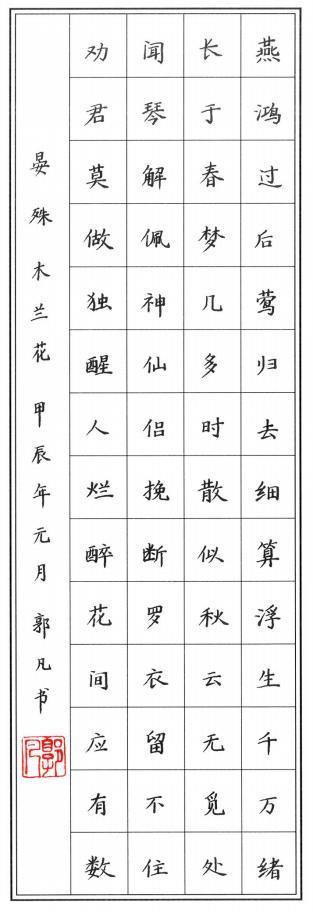 燕鸿过后莺归去细算浮生千万绪
长于春梦几多时散似秋云无觅处
闻琴解佩神仙侣挽断罗衣留不住
劝君莫做独醒人烂醉花间应有数
晏殊木兰花 甲辰年元月 郭凡书
郭凡